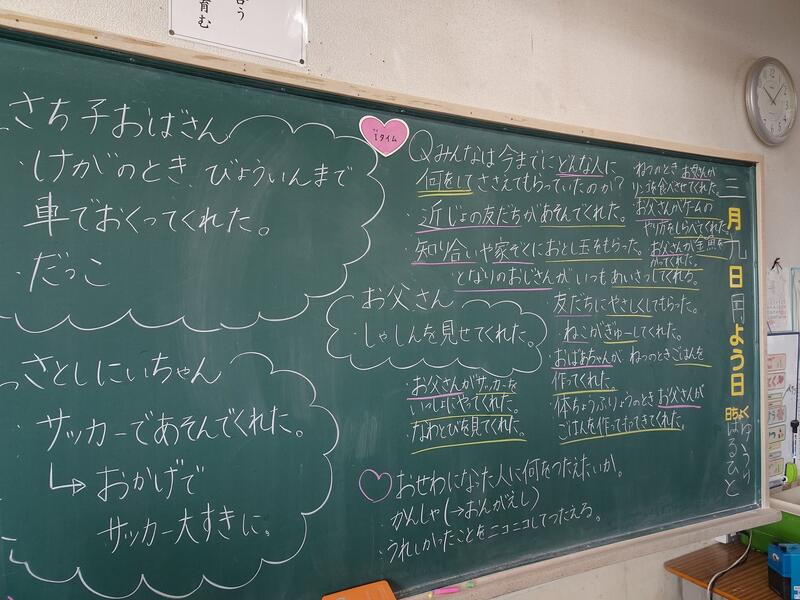 う
育む
さち子おばさん
・けがのとき、びょういんまで
車でおくってくれた。
・だっこ
さとしにいちゃん
・サッカーであそんでくれた。
↳おかげで
サッカー大すきに。
Iタイム
Qみんなは今までにどんな人に
何をしてささえてもらっていたのか?
・近じょの友だちがあそんでくれた。
・知り合いや家ぞくにおとし玉をもらった。
・となりのおじさんがいつもあいさつしてくれる。
お父さん
・しゃしんを見せてくれた。
・お父さんがサッカーを
いっしょにやってくれた。
・なわとびを見てくれた。
ねつのときお母さんが
りんごを食べさせてくれた。
お父さんがゲームの
やり方をしらべてくれた。
お父さんが金魚を
かってくれた。
・友だちにやさしくしてもらった。
・ねこがぎゅーしてくれた。
・おばあちゃんがねつのときごはんを
作ってくれた。
・体ちょうふりょうのときお父さんが
ごはんを作ってもってきてくれた。
♡おせわになった人に何をつたえたいか。
・かんしゃ(→おんがえし)
・うれしかったことをニコニコしてつたえる。
三月九日月よう日
日ちょく
はるひと